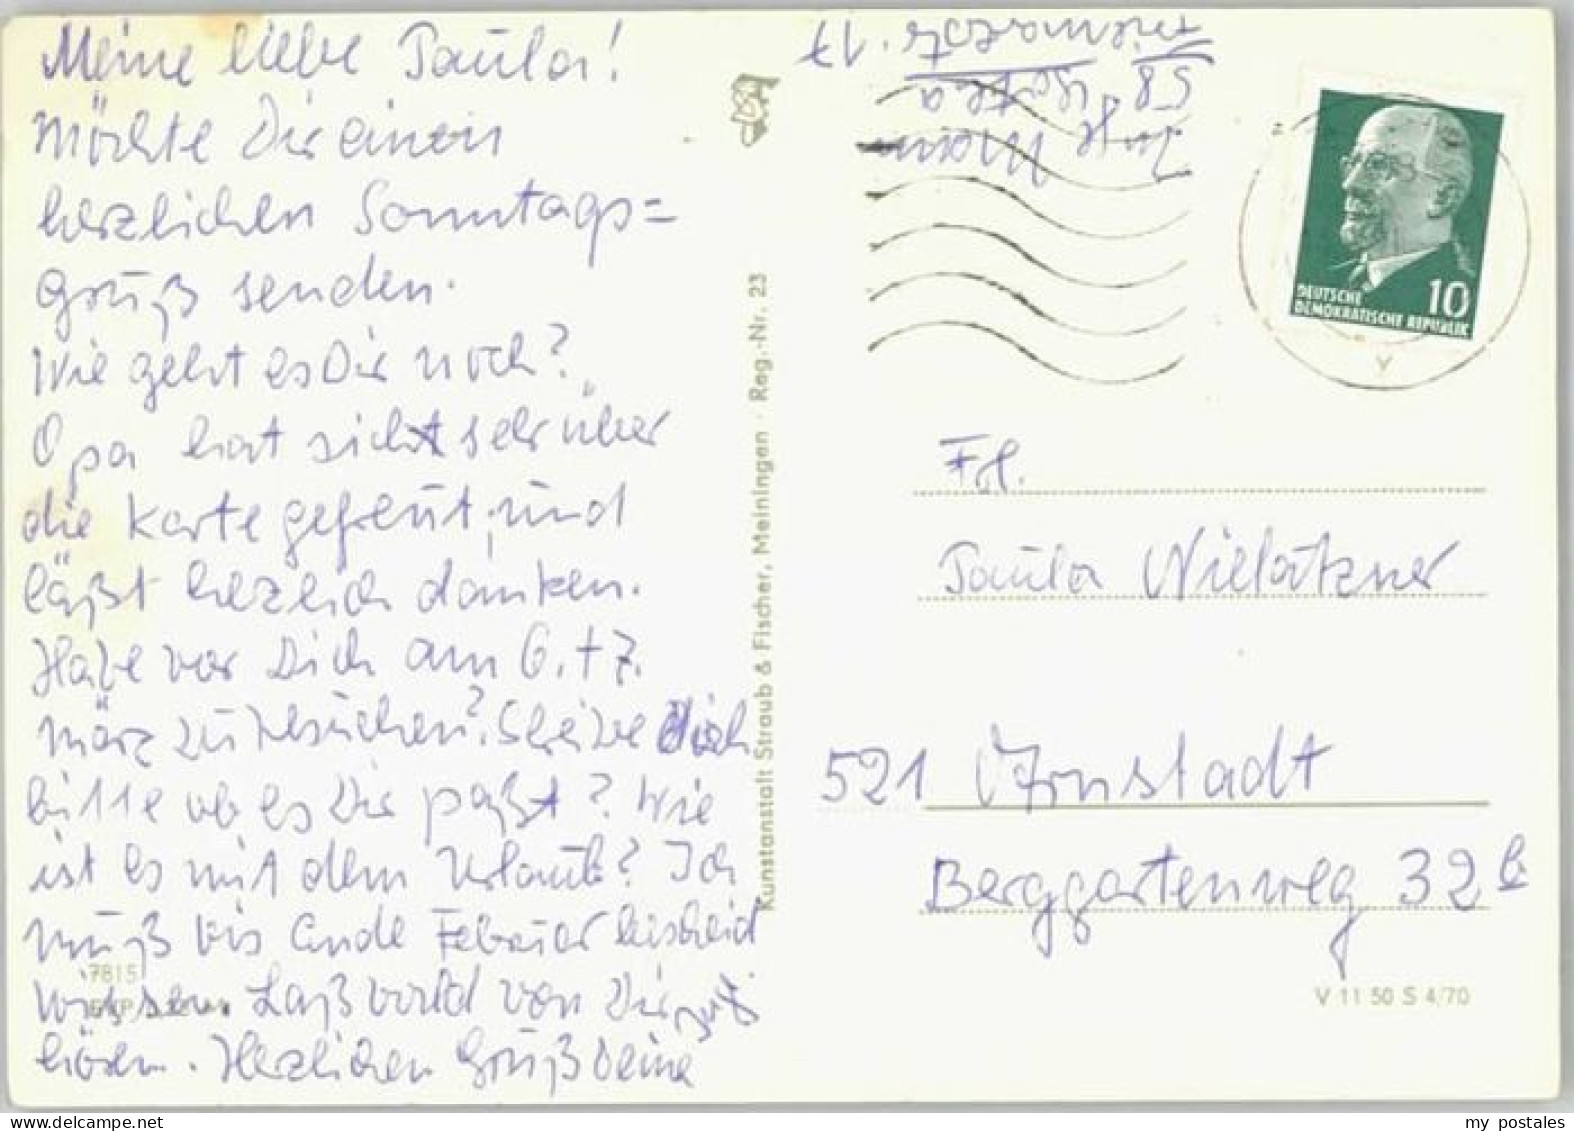 Meine liebe Paula!
Möchte Dir einen
herzlichen Sonntags=
gruß senden.
Wie geht es Dir noch?
Opa hat sich sehr über
die Karte gefreut, und
läßt herzlich danken.
Habe vor Dich am 6.+7.
März zu besuchen? Schreibe
bitte ob es Dir paßt? Wie
ist es mit dem Urlaub? Ich
muß bis Ende Februar bescheid
wissen. Laß bald von Dir
hören. Herzlichen Gruß Deine
Inge
58 Gotha
17
Kunstanstalt Straub & Fischer, Meiningen · Reg.-Nr. 23
10
DEUTSCHE
DEMOKRATISCHE REPUBLIK
Frl.
Paula
521 Arnstadt
Berggartenweg 32 b
7815
V 11 50 S 4/70
my postales